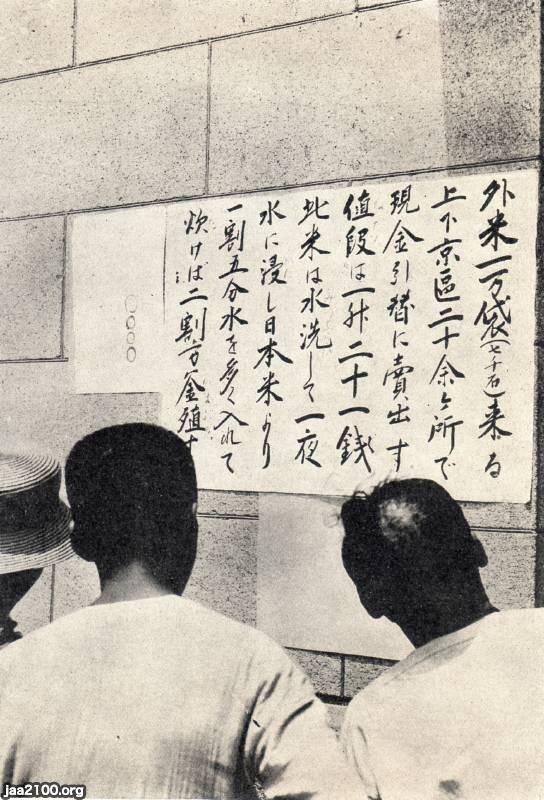 外米一万袋(七千石)来る
上下京區二十余ヶ所で
現金引替に賣出す
値段は一升二十一銭
此米は水洗して一夜
水に浸し日本米より
一割五分水を多く入れて
炊けば二割方釜殖す
○○○○
jaa2100.org